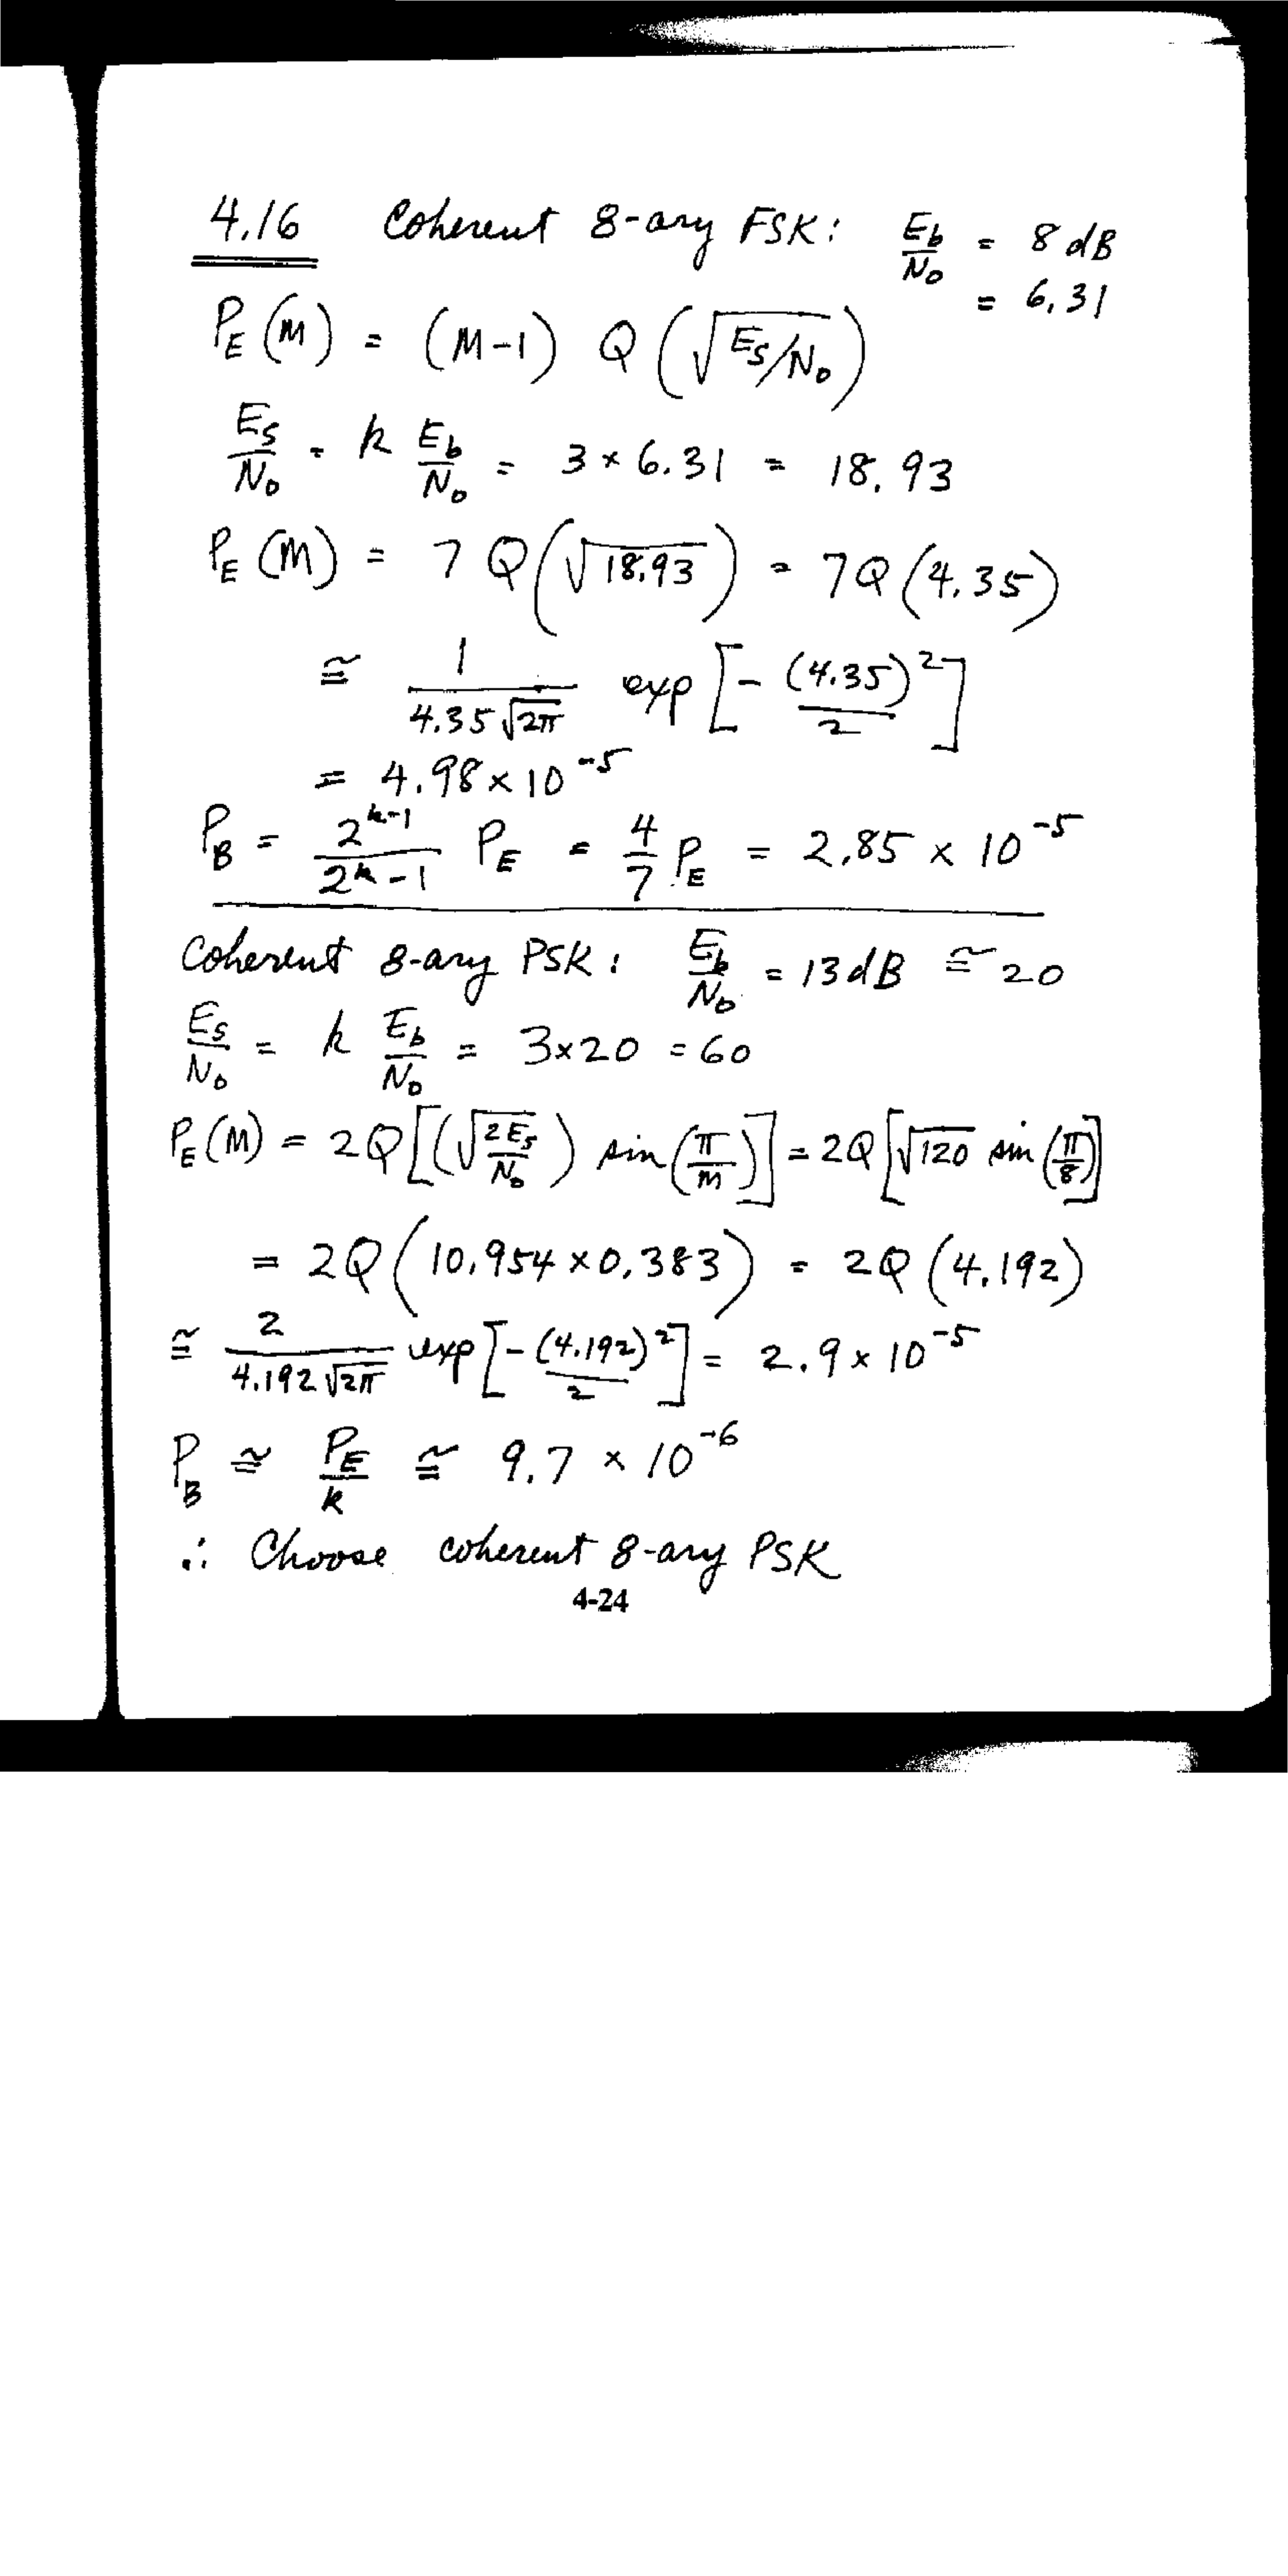 4.16 Coherent 8-ary FSK: E_b/N_0 = 8 dB
= 6.31
P_E (M) = (M-1) Q (√(E_s/N_0))
E_s/N_0 = k E_b/N_0 = 3 × 6.31 = 18.93
P_E (M) = 7 Q (√18.93) = 7Q (4.35)
≅ 1/(4.35 √2π) exp [- (4.35)²/2]
= 4.98 × 10⁻⁵
P_B = 2^(k-1)/(2^k - 1) P_E = 4/7 P_E = 2.85 × 10⁻⁵
Coherent 8-ary PSK: E_b/N_0 = 13 dB ≅ 20
E_s/N_0 = k E_b/N_0 = 3×20 = 60
P_E (M) = 2Q [(√(2E_s/N_0)) sin (π/M)] = 2Q [√120 sin (π/8)]
= 2Q (10.954 × 0.383) = 2Q (4.192)
≅ 2/(4.192 √2π) exp [- (4.192)²/2] = 2.9 × 10⁻⁵
P_B ≅ P_E/k ≅ 9.7 × 10⁻⁶
∴ Choose coherent 8-ary PSK
4-24